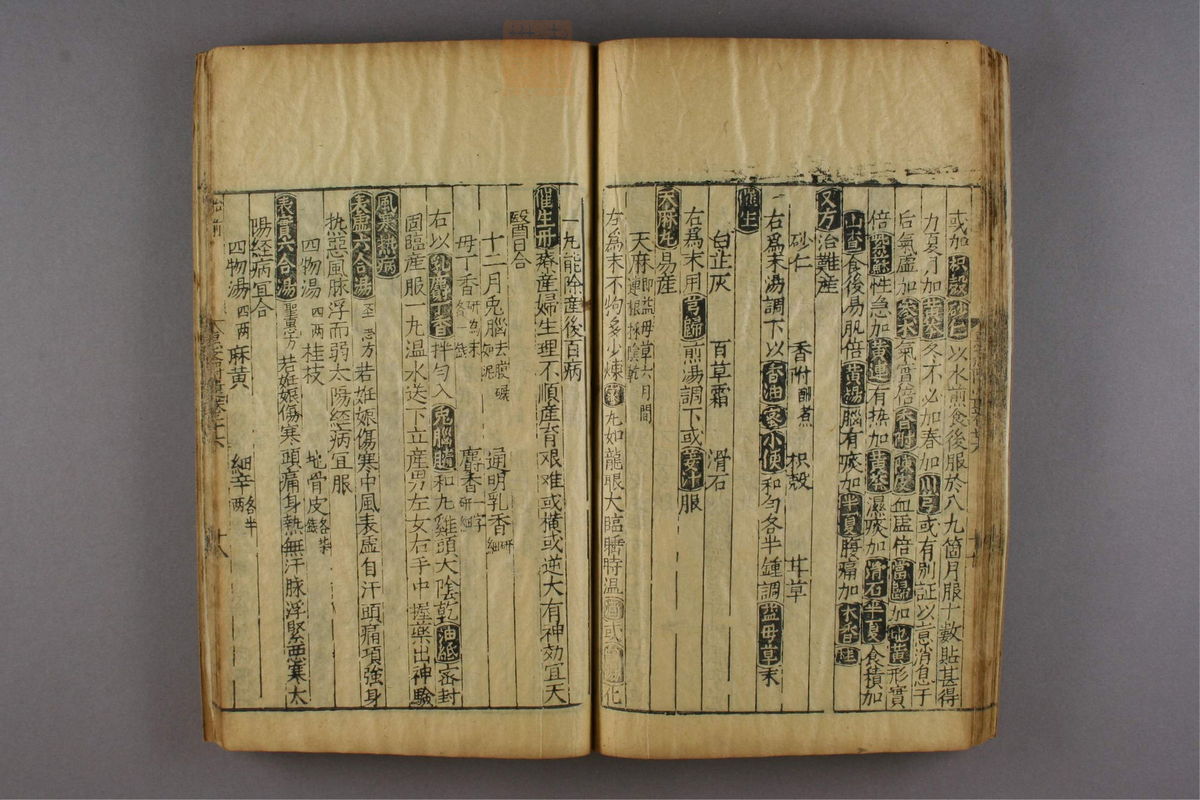 或加枳殼砂仁以水煎食後服於八九箇月服十數貼甚得
力夏月加黃芩冬不必加春加川芎或有別証以意消息于
后氣虛加參朮氣實倍香附陳皮血虛倍當歸加地黃形實
倍紫蘇性急加黃連有热加黃芩濕痰加滑石半夏食積加
山查食後易肌倍黃湯腦有痰加半夏腹痛加木香桂
又方治難產
砂仁 香附醋煮 枳殼 甘草
右爲末湯調下以香油蜜小便和勻各半鍾調益母草末
催生
白芷灰 百草霜 滑石
右爲末用芎歸煎湯調下或姜汁服
天麻丸易產
天麻即益母草六月間連根採陰乾
右爲末不拘多少煉蜜丸如龍眼大臨睡時溫酒或湯化
一丸能除產後百病
催生丹療產婦生理不順產育艰难或橫或逆大有神効宜天
醫日合
十二月兔腦去膜碾如泥 通明乳香研細
母丁香研為末各錢 麝香研細一字
右以乳麝丁香拌勻入兔腦髓和丸雞頭大陰乾油紙密封
固臨產服一丸温水送下立產男左女右手中握藥出神驗
風寒热病
表虛六合湯 若姙娠傷寒中風表虛自汗頭痛項強身
热惡風脉浮而弱太陽経病宜服
四物湯四两 桂枝 地骨皮各柒錢
表實六合湯聖惠方若姙娠傷寒頭痛身熱無汗脉浮緊惡寒太
陽経病宜合
四物湯四两 麻黃 細辛各半两